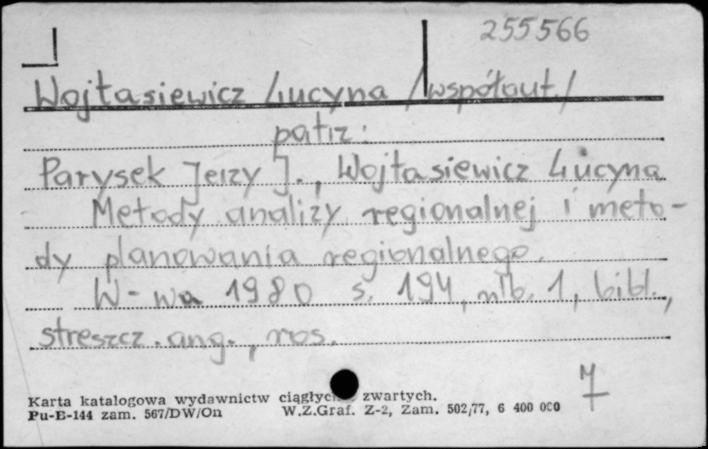 255566
Wojtasiewicz Lucyna /współaut./
patrz:
Parysek Jerzy J., Wojtasiewicz Lucyna
Metody analizy regionalnej i meto-
dy planowania regionalnego.
W-wa 1980 s. 194, nlb. 1, bibl.,
streszcz. ang., ros.
7
Karta katalogowa wydawnictw ciągłyc zwartych.
Pu-B-144 zam. 567/DW/On W.Z.Graf. Z-2, Zam. 502/77, 6 400 000